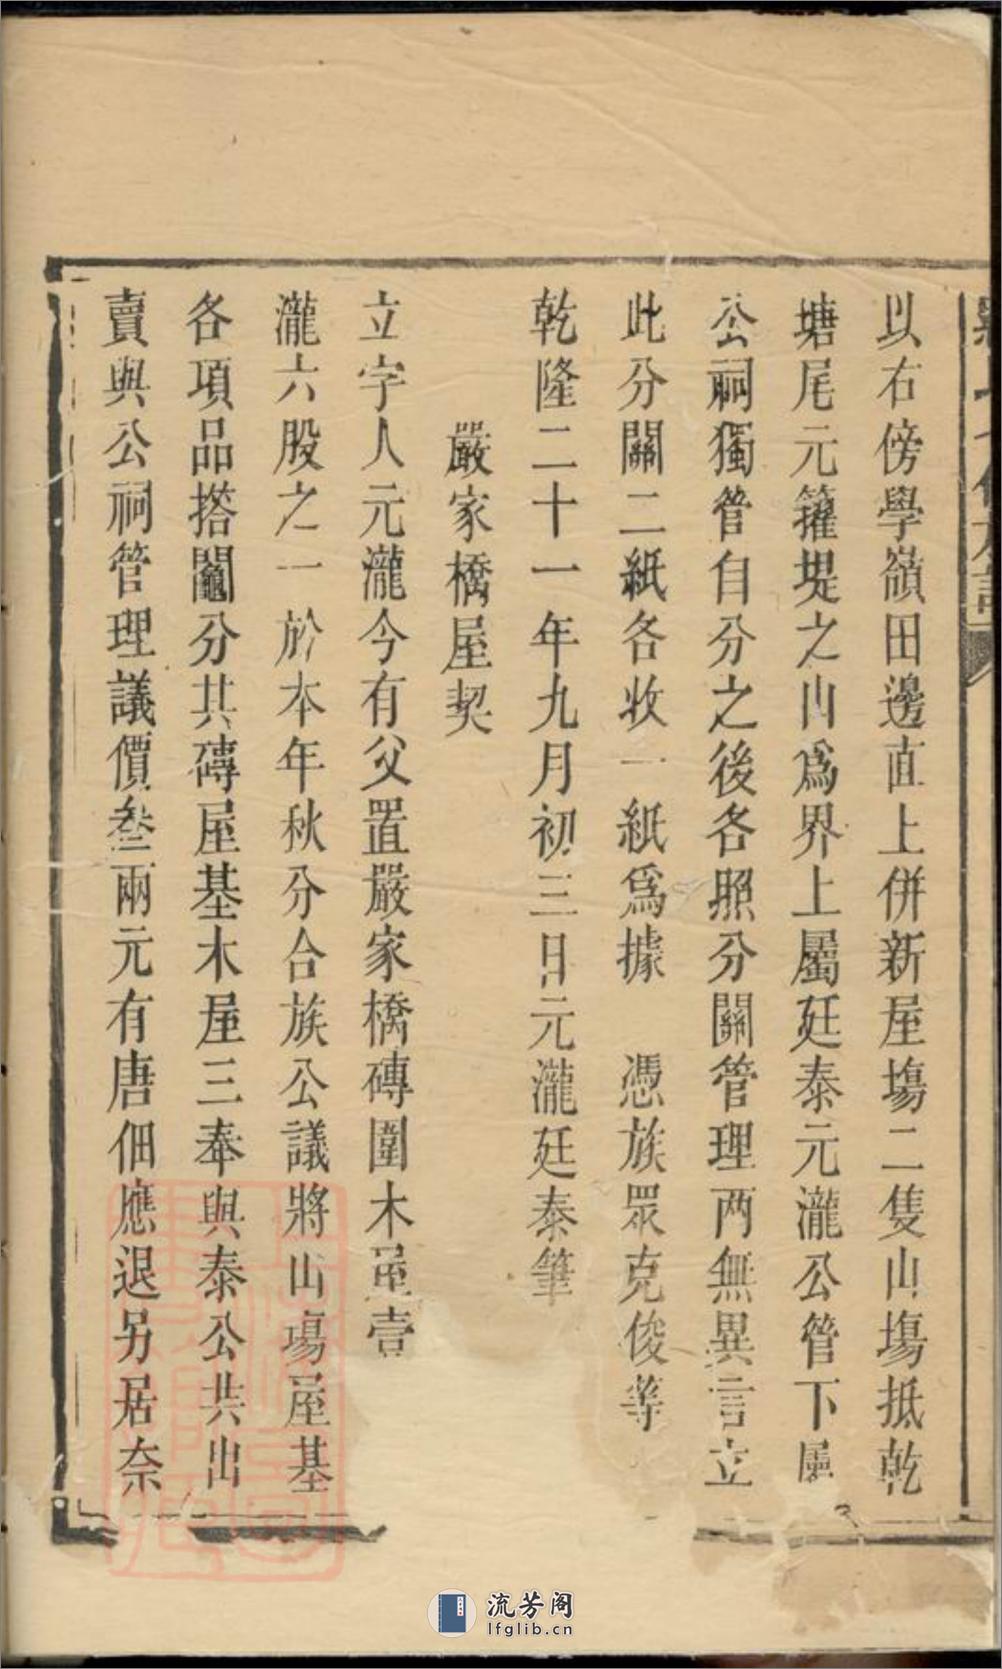 以右傍學嶺田邊直上併新屋塲二隻山塲抵乾
塘尾元籬堤之山爲界上屬廷泰元瀧公管下屬
公祠獨管自分之後各照分關管理两無異言立
此分關二紙各收一紙爲據　憑族眾克俊等
乾隆二十一年九月初三日元瀧廷泰筆
嚴家橋屋契
立字人元瀧今有父置嚴家橋磚圍木屋壹
瀧六股之一於本年秋分合族公議將山塲屋基
各項品搭鬮分共磚屋基木屋三奉與泰公共出
賣與公祠管理議價叄兩元有唐佃應退另居奈
流芳阁
lfglib.cn